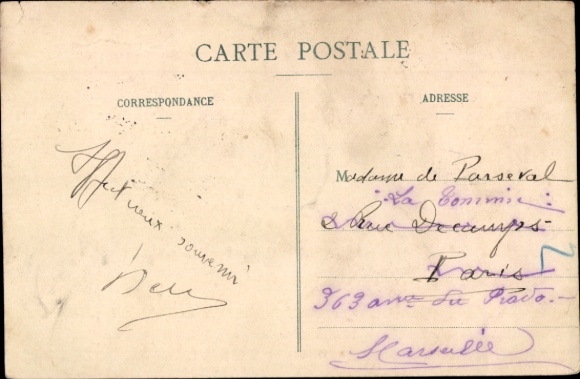 CARTE POSTALE
CORRESPONDANCE
ADRESSE
Affectueux souvenir
Madame de Parseval
"La
2 Rue Decamps
Paris
363 du Prado
Marseille